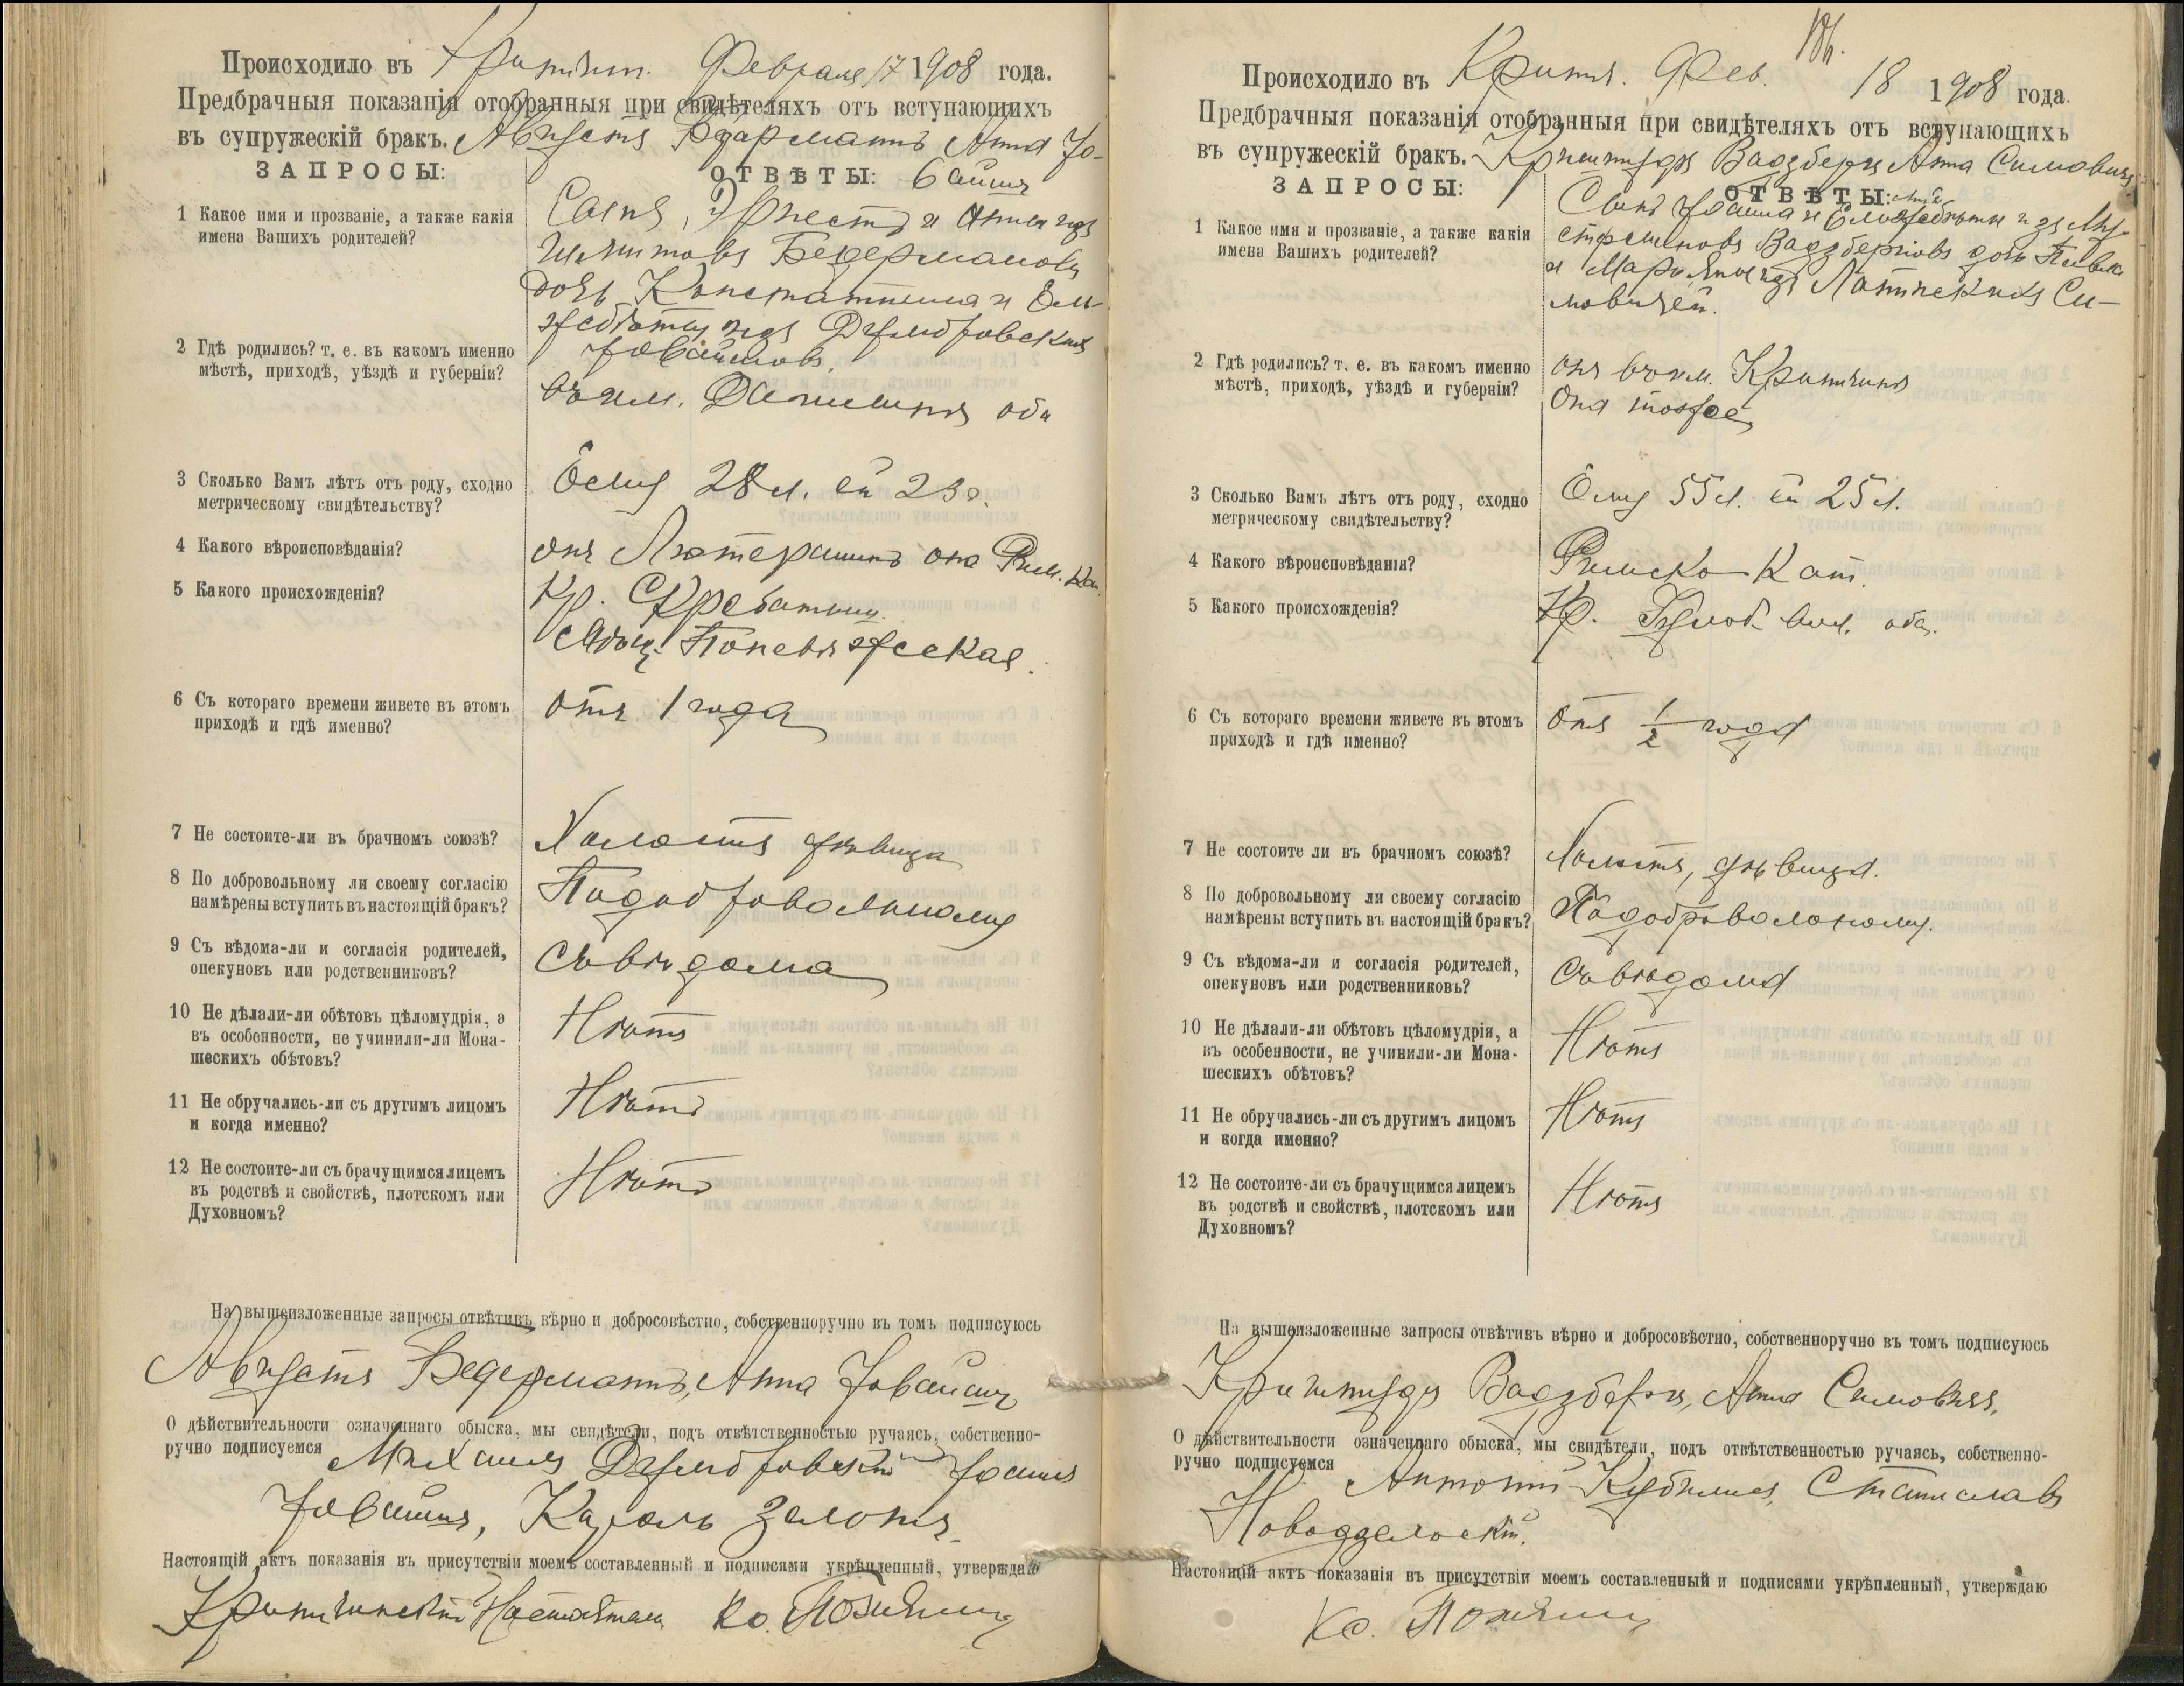 Происходило въ Февраля 17 1908 года.
Предбрачныя показанія отобранныя при свидѣтеляхъ отъ вступающихъ
въ супружескій бракъ. Августъ Анна Іо-
ЗАПРОСЫ: ОТВѢТЫ: вайшъ
1 Какое имя и прозваніе, а также какія
имена Вашихъ родителей?
Сынъ, Эрнеста и Анны изъ
Бедермановъ
дочь Константина и Ели-
жебѣты изъ Домбровскихъ
Іовайшовъ
2 Гдѣ родились? т. е. въ какомъ именно
мѣстѣ, приходѣ, уѣздѣ и губерніи?
въ им. оба
3 Сколько Вамъ лѣтъ отъ роду, сходно
метрическому свидѣтельству?
Ему 28 л. ей 23
4 Какого вѣроисповѣданія?
онъ Лютеранинъ она Рим. Кат.
5 Какого происхожденія?
Кр.
Мѣщ. Поневѣжская.
6 Съ котораго времени живете въ этомъ
приходѣ и гдѣ именно?
отъ 1 года
7 Не состоите-ли въ брачномъ союзѣ?
Холостъ дѣвица
8 По добровольному ли своему согласію
намѣрены вступить въ настоящій бракъ?
По добровольному
9 Съ вѣдома-ли и согласія родителей,
опекуновъ или родственниковъ?
Съ вѣдома
10 Не дѣлали-ли обѣтовъ цѣломудрія, а
въ особенности, не учинили-ли Мона-
шескихъ обѣтовъ?
Нѣтъ
11 Не обручались-ли съ другимъ лицомъ
и когда именно?
Нѣтъ
12 Не состоите-ли съ брачущимся лицемъ
въ родствѣ и свойствѣ, плотскомъ или
Духовномъ?
Нѣтъ
На вышеизложенные запросы отвѣтивъ вѣрно и добросовѣстно, собственноручно въ томъ подписуюсь
Августъ Бедерманъ, Анна Іовайшъ
О дѣйствительности означеннаго обыска, мы свидѣтели, подъ отвѣтственностью ручаясь, собственно-
ручно подписуемся Михаилъ Домбровскій Іоаннъ
Іовайша, Кароль
Настоящій актъ показанія въ присутствіи моемъ составленный и подписями укрѣпленный, утверждаю
Настоятель Кс.
Происходило въ Фев. 18 1908 года.
Предбрачныя показанія отобранныя при свидѣтеляхъ отъ вступающихъ
въ супружескій бракъ. Анна Симовичъ
ЗАПРОСЫ: ОТВѢТЫ:
1 Какое имя и прозваніе, а также какія
имена Вашихъ родителей?
Сынъ Іоанна и Елижебѣты изъ
Вадзберговъ дочь Павла
и Маріянны изъ Си-
мовичей.
2 Гдѣ родились? т. е. въ какомъ именно
мѣстѣ, приходѣ, уѣздѣ и губерніи?
онъ въ им.
Она тоже
3 Сколько Вамъ лѣтъ отъ роду, сходно
метрическому свидѣтельству?
Ему 55 л. ей 25 л.
4 Какого вѣроисповѣданія?
Римско-Кат.
5 Какого происхожденія?
Кр. вол. оба.
6 Съ котораго времени живете въ этомъ
приходѣ и гдѣ именно?
Отъ 1/2 года
7 Не состоите ли въ брачномъ союзѣ?
Холостъ, дѣвица.
8 По добровольному ли своему согласію
намѣрены вступить въ настоящій бракъ?
По добровольному.
9 Съ вѣдома-ли и согласія родителей,
опекуновъ или родственниковъ?
Съ вѣдома
10 Не дѣлали-ли обѣтовъ цѣломудрія, а
въ особенности, не учинили-ли Мона-
шескихъ обѣтовъ?
Нѣтъ
11 Не обручались-ли съ другимъ лицомъ
и когда именно?
Нѣтъ
12 Не состоите-ли съ брачущимся лицемъ
въ родствѣ и свойствѣ, плотскомъ или
Духовномъ?
Нѣтъ
На вышеизложенные запросы отвѣтивъ вѣрно и добросовѣстно, собственноручно въ томъ подписуюсь
Вадзбергъ, Анна Симовичъ.
О дѣйствительности означеннаго обыска, мы свидѣтели, подъ отвѣтственностью ручаясь, собственно-
ручно подписуемся Антоній Кубилисъ, Станиславъ
Настоящій актъ показанія въ присутствіи моемъ составленный и подписями укрѣпленный, утверждаю
Кс.